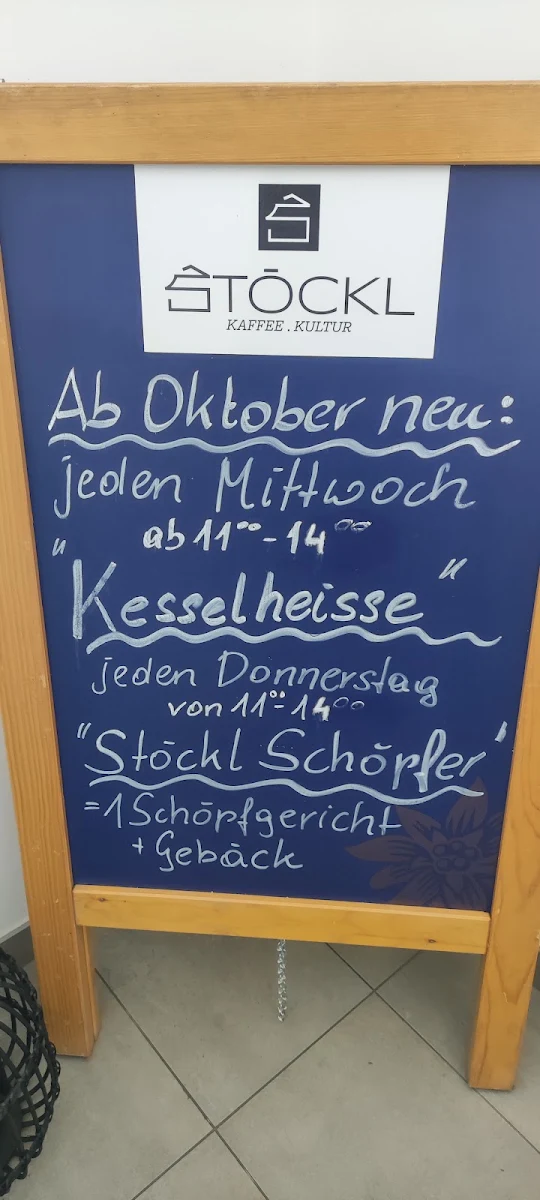 STÖCKL
KAFFEE . KULTUR
Ab Oktober neu:
jeden Mittwoch
ab 11⁰⁰-14⁰⁰
"Kesselheisse"
jeden Donnerstag
von 11⁰⁰-14⁰⁰
"Stöckl Schöpfer"
=1 Schöpfgericht
+ Gebäck